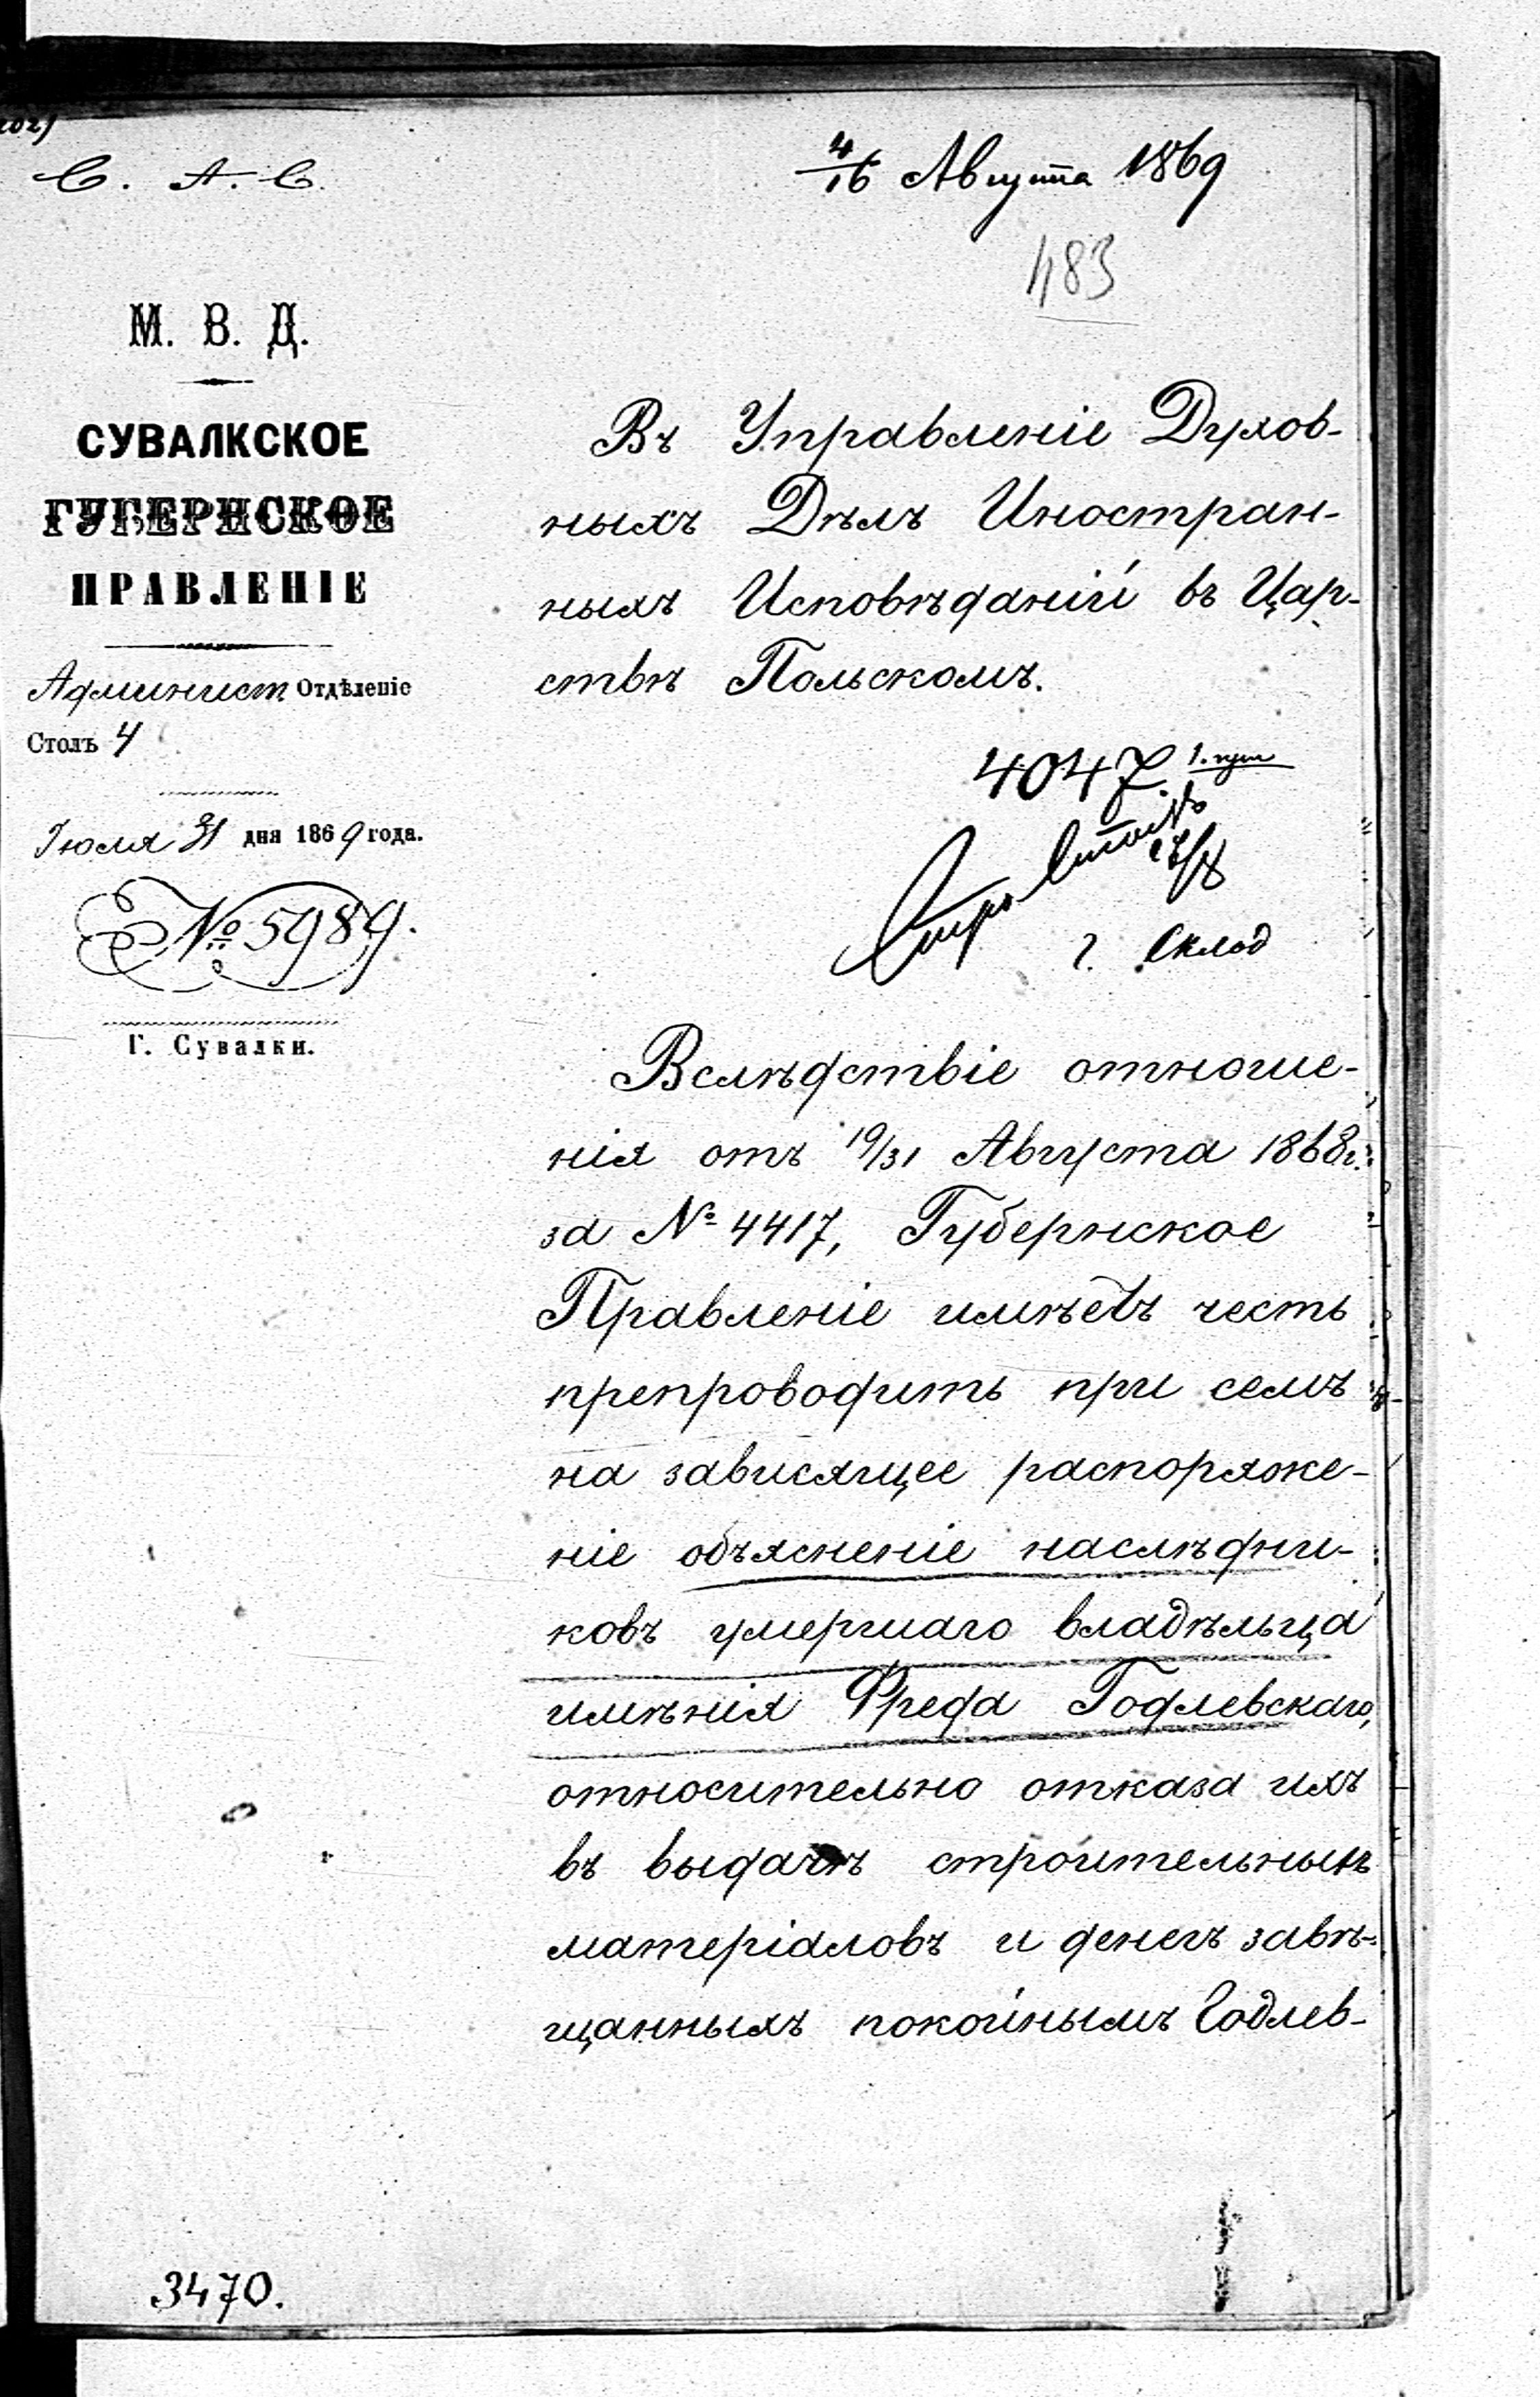 С. А. С.
4/16 Августа 1869
483
М. В. Д.
СУВАЛКСКОЕ
ГУБЕРНСКОЕ
ПРАВЛЕНІЕ
Админист Отдѣленіе
Столъ 4
Іюля 31 дня 1869 года.
№ 5989.
Г. Сувалки.
Въ Управленіе Духов-
ныхъ Дѣлъ Иностран-
ныхъ Исповѣданій въ Цар-
ствѣ Польскомъ.
4047.
г. Склад
Вслѣдствіе отноше-
нія отъ 19/31 Августа 1868 г.
за № 4417, Губернское
Правленіе имѣетъ честь
препроводить при семъ
на зависящее распоряже-
ніе объясненіе наслѣдни-
ковъ умершаго владѣльца
имѣнія Фреда Годлевскаго,
относительно отказа ихъ
въ выдачѣ строительныхъ
матеріаловъ и денегъ завѣ-
щанныхъ покойнымъ Годлев-
3470.